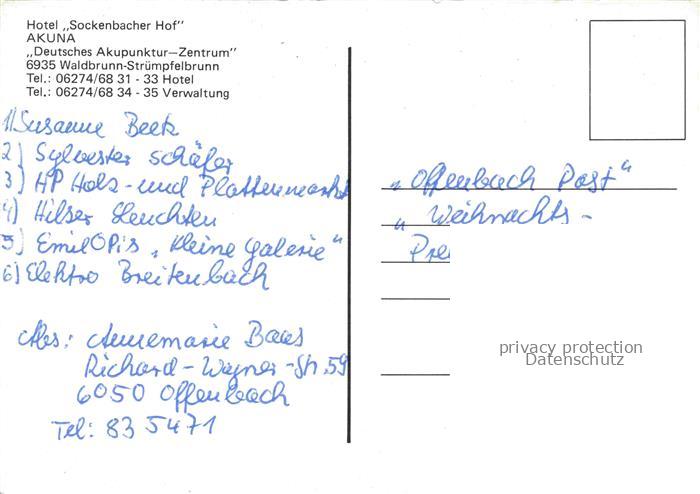 Hotel „Sockenbacher Hof"
AKUNA
„Deutsches Akupunktur—Zentrum"
6935 Waldbrunn-Strümpfelbrunn
Tel.: 06274/68 31 - 33 Hotel
Tel.: 06274/68 34 - 35 Verwaltung
1) Susanne Beek
2) Sylvester Schäfer
3) HP Holz- und Plattenmarkt
4) Hilser Leuchten
5) Emil Opis „Kleine Galerie"
6) Elektro Breitenbach
Abs: Annemarie Baas
Richard-Wagner-Str. 59
6050 Offenbach
Tel: 83 5471
„Offenbach Post"
„Weihnachts-
Pre
privacy protection
Datenschutz